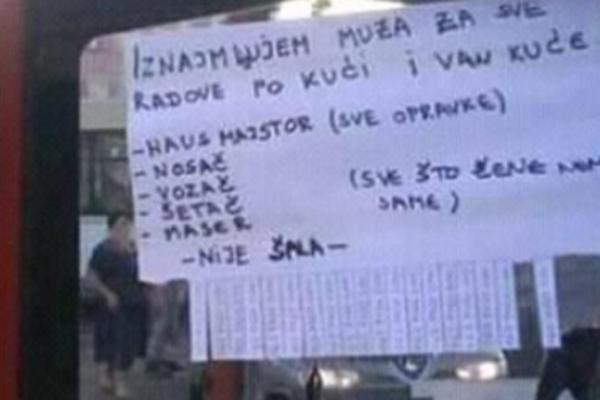 IZNAJMLJUJEM MUŽA ZA SVE
RADOVE PO KUĆI I VAN KUĆE
-HAUS MAJSTOR (SVE OPRAVKE)
-NOSAČ
-VOZAČ (SVE ŠTO ŽENE
-ŠETAČ SAME)
-MASER
-NIJE ŠALA-